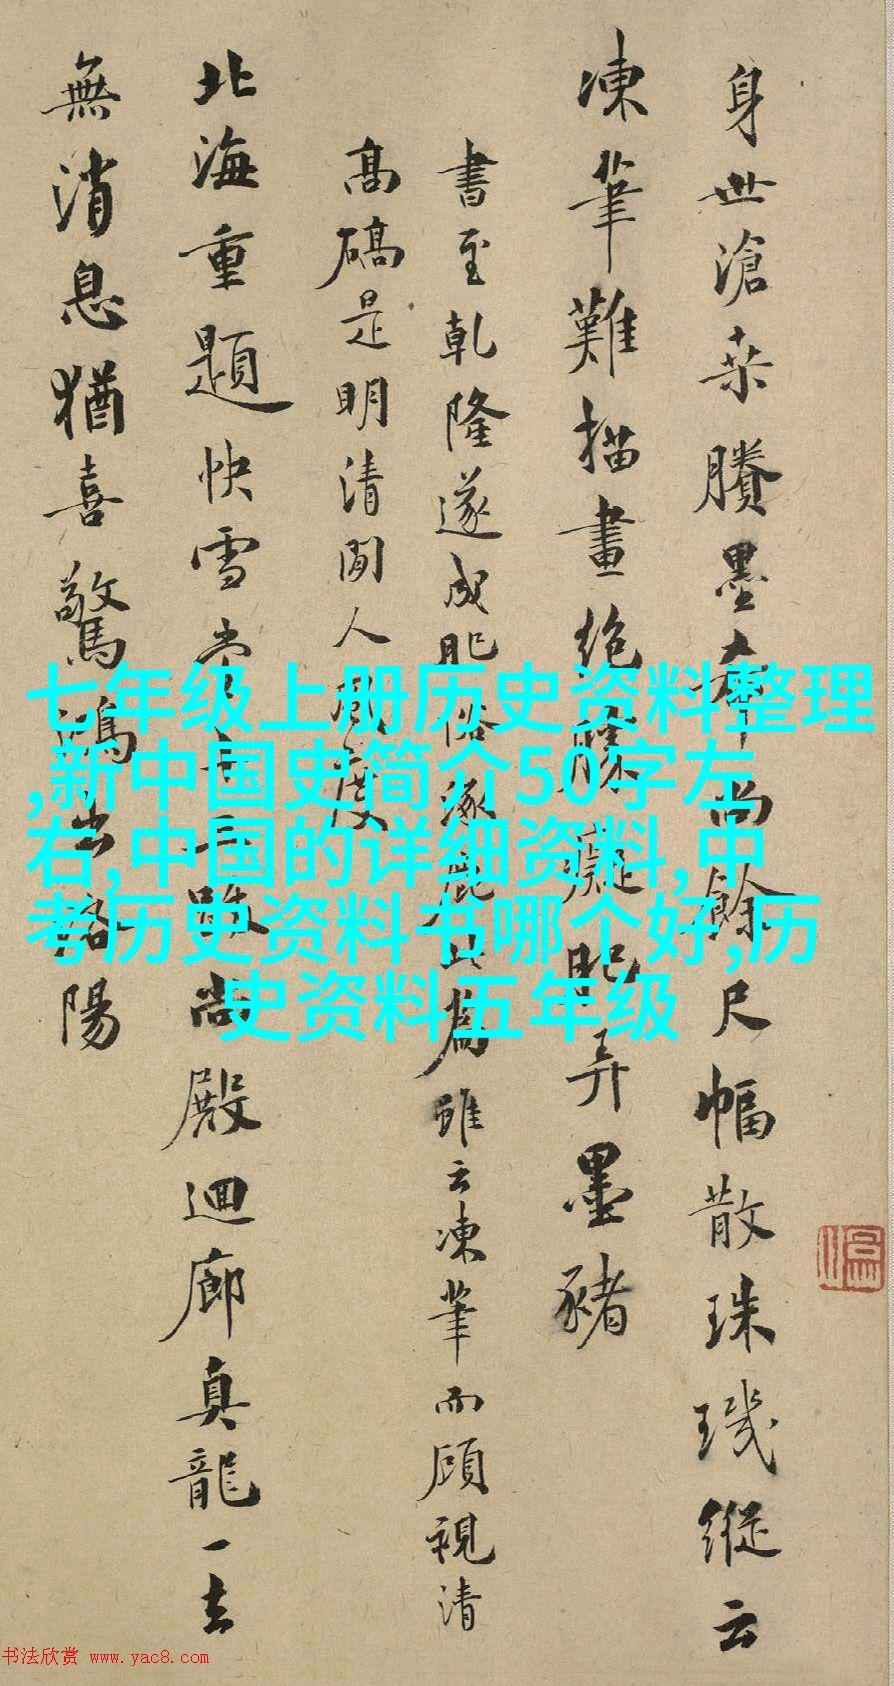 身世滄桑賸墨尚餘尺幅散珠璣縱云
凍筆難描畫絶勝癡肥弄墨豬
書至乾隆遂成肥俗涿鹿此爲雖云凍筆而顧視清
高是明清間人風度
北海重題快雪堂尚殿迴廊真龍一去
無消息猶喜驚鴻出洛陽
七年级上册历史资料整理
,新中国史简介50字左
右,中国的详细资料,中
考历史资料书哪个好,历
史资料五年级
书法欣赏 www.yac8.com